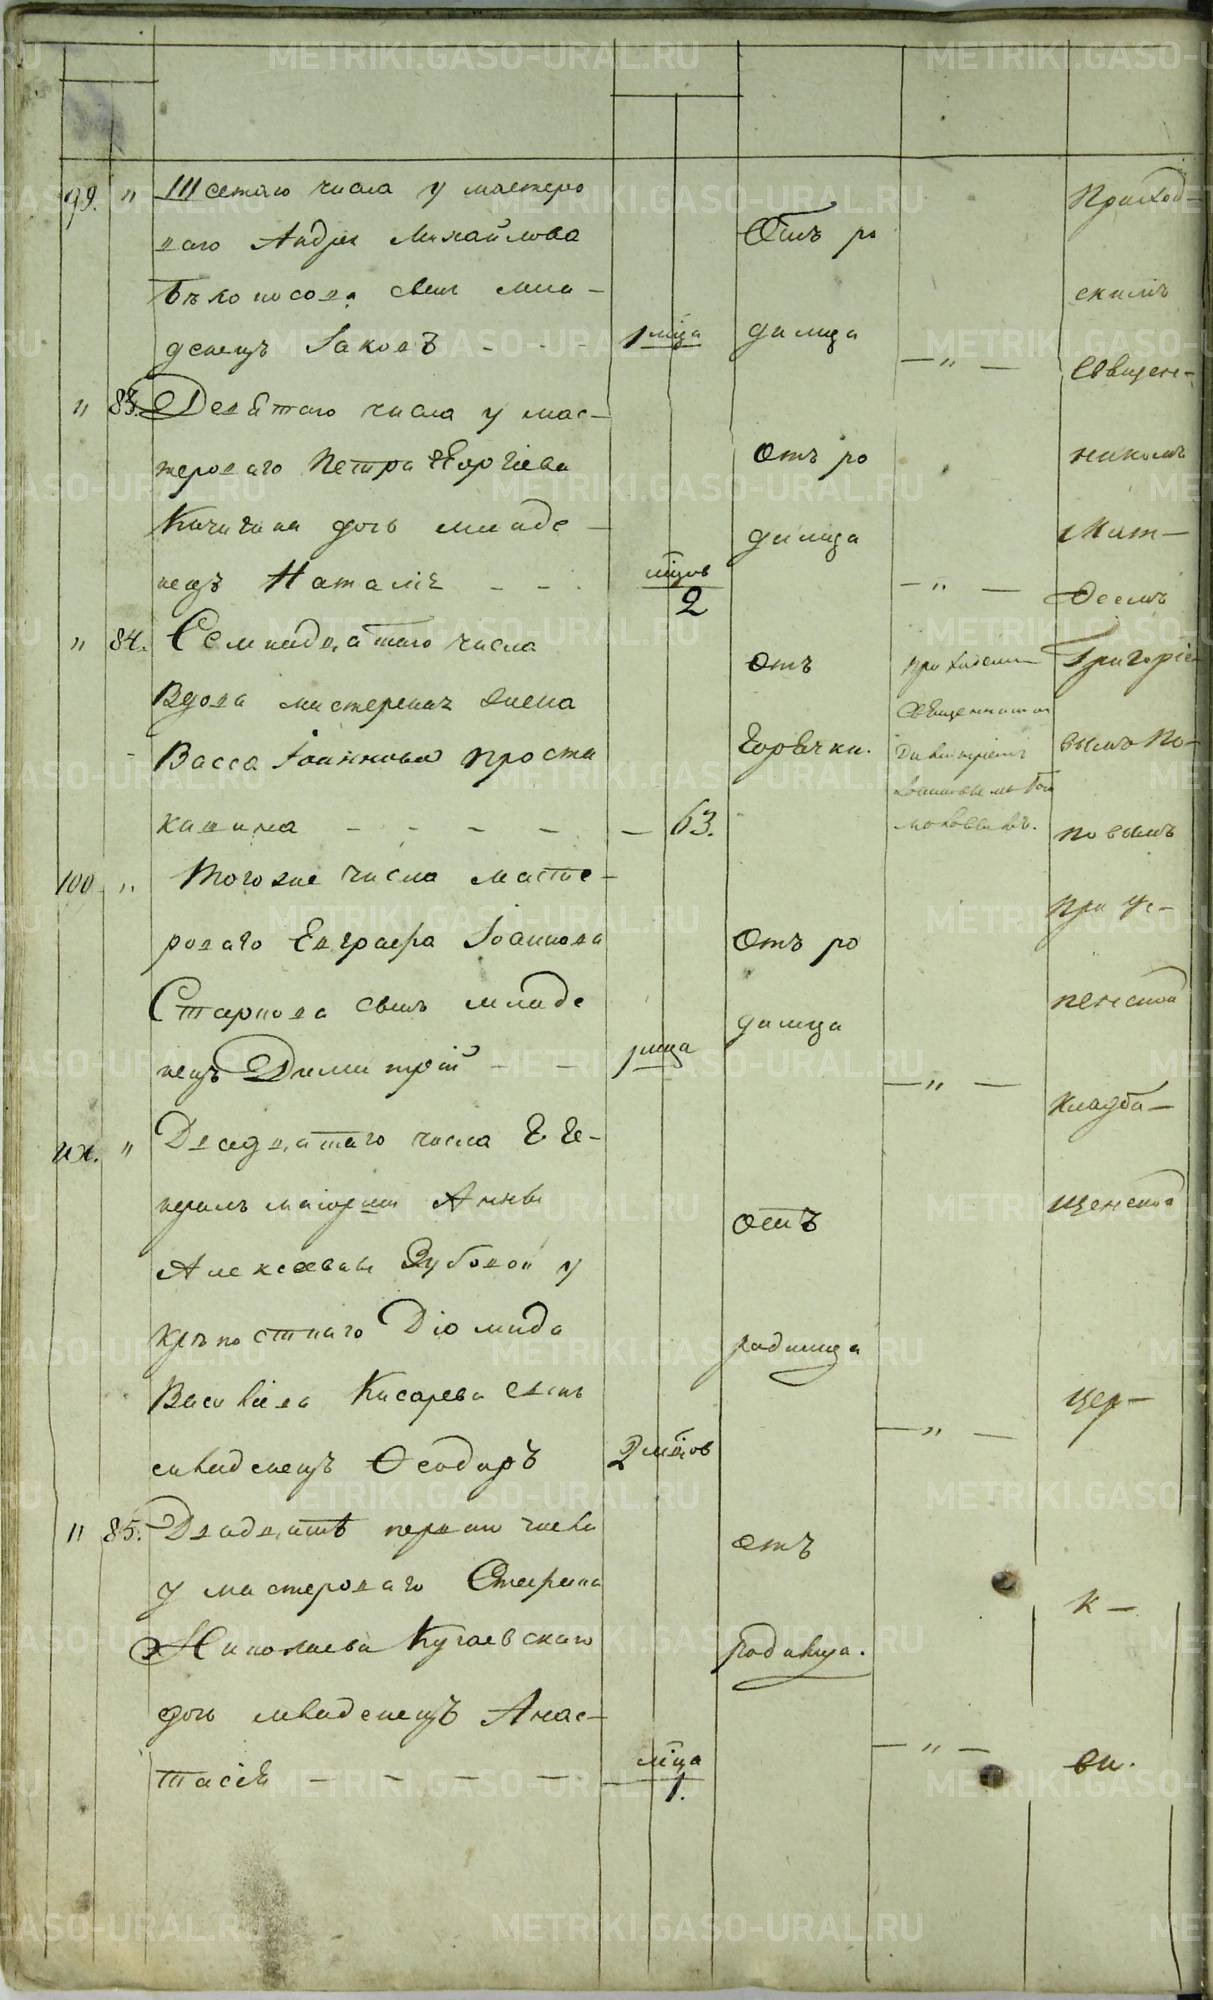 99. " Шестаго числа у мастеро
ваго Андрея Михайлова
Бѣлоносова сынъ мла-
денецъ Iаковъ - - -
1 мца
Отъ ро
димца
— " —
" 83. Девятаго числа у мас-
тероваго Петра Георгіева
Кичигина дочь младе-
нецъ Наталія - - -
мцовъ
2
Отъ ро
димца
— " —
" 84. Семнадцатаго числа
Вдова мастерская жена
Васса Iоаннова Проста
кишина - - - - - 63.
Отъ
Горячки.
Священником
100 " Того же числа масте-
роваго Евграфа Iоаннова
Старкова сынъ младе
нецъ Димитрій - -
1 мца
Отъ ро
димца
— " —
101. " Двадцатаго числа Г. Ге-
нералъ маіорши Анны
Алексѣевны Зубовой у
крѣпостнаго Діомида
Васильева Кисарева сынъ
младенецъ Ѳеодоръ
2 мцовъ
отъ
родимца
— " —
" 85. Двадцать перваго числа
у мастероваго Стефана
Николаева Кугаевскаго
дочь младенецъ Анас-
тасія - - - -
мца
1.
отъ
родимца.
— " —
Приход-
скимъ
Священ-
никомъ
Мат-
ѳеемъ
Григоріе-
вымъ По-
повымъ
при Ус-
пенской
Кладби-
щенской
цер-
к-
ви.
METRIKI.GASO-URAL.RU